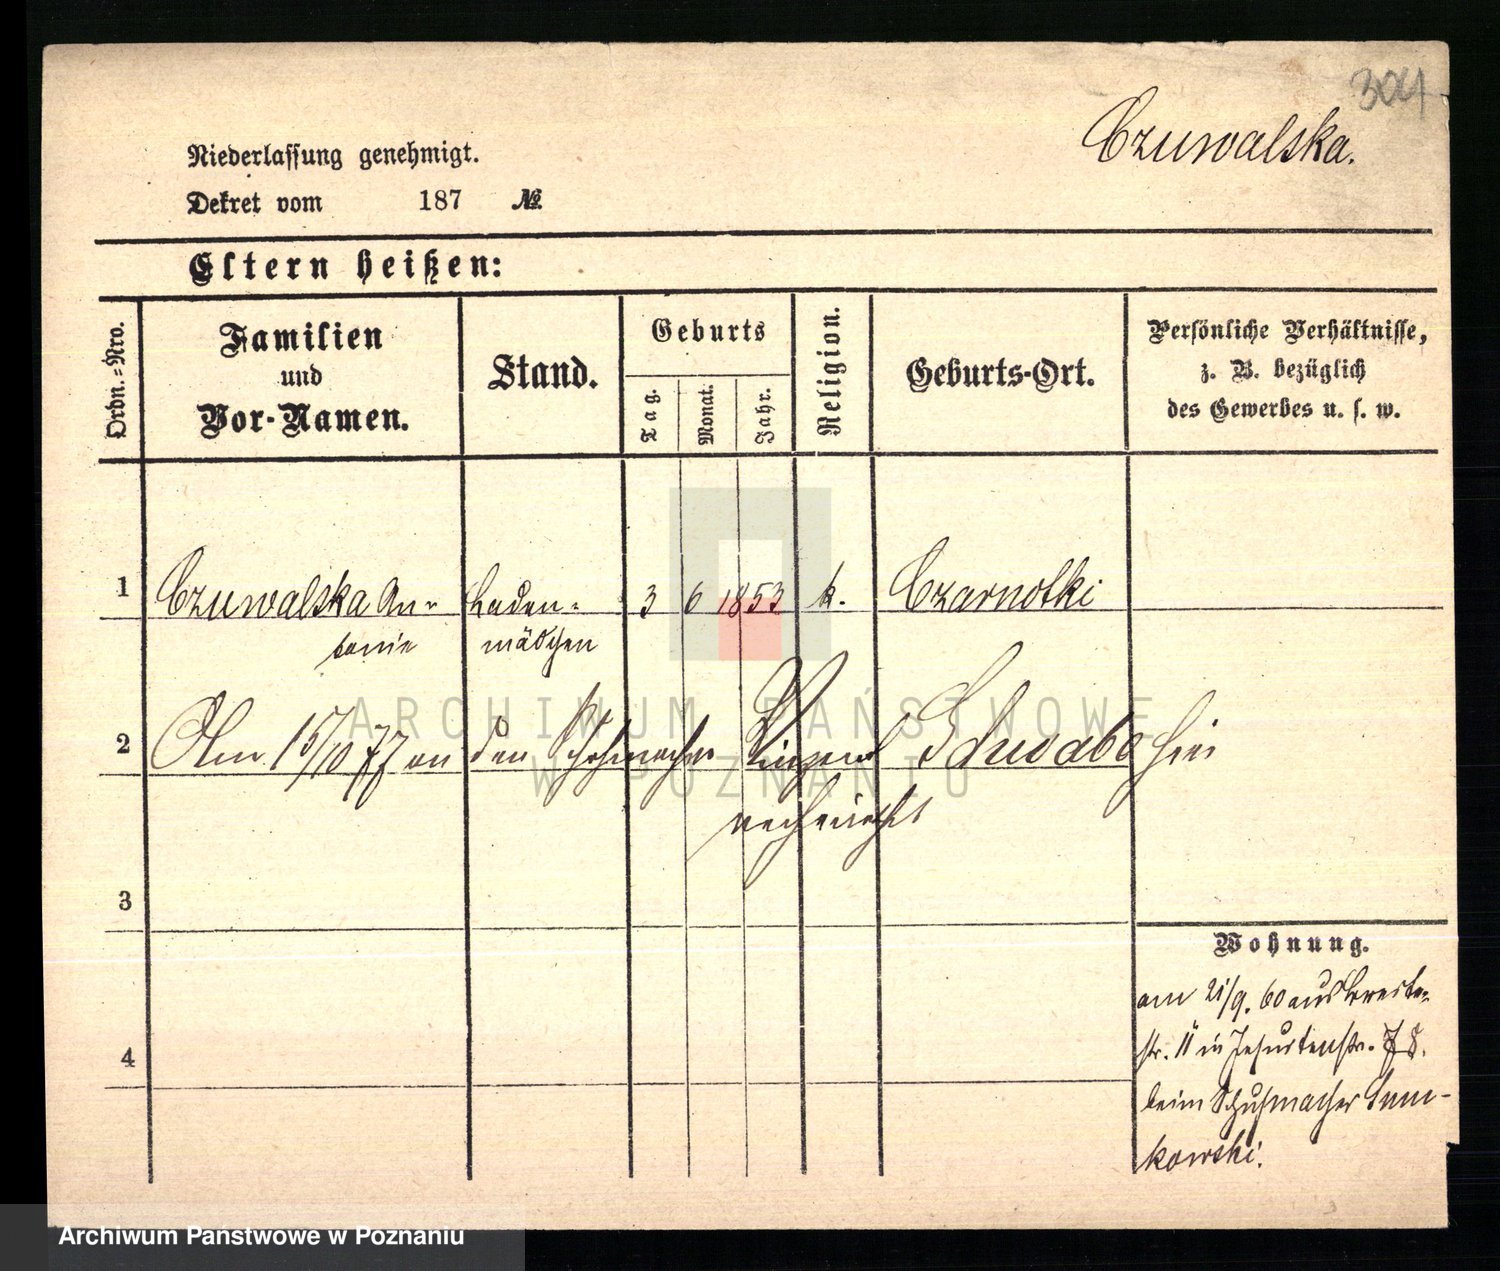 304
Czuwalska.
Niederlassung genehmigt.
Dekret vom 187 №
Eltern heißen:
Ordn.=Nro.
Familien
und
Vor-Namen.
Stand.
Geburts
Tag.
Monat.
Jahr.
Religion.
Geburts-Ort.
Persönliche Verhältnisse,
z. B. bezüglich
des Gewerbes u. s. w.
1 Czuwalska An- Laden- 3 6 1853 k. Czarnotki
tonie mädchen
ARCHIWUM PAŃSTWOWE
2 Am 15/10 77 an den Schuhmacher Vinzent Schwabe hier
W POZNANIU
verheirathet
3
Wohnung.
am 21/9. 60 aus
str. 11 in Jesuitenstr. 78.
4
beim Schuhmacher
kowski.
Archiwum Państwowe w Poznaniu